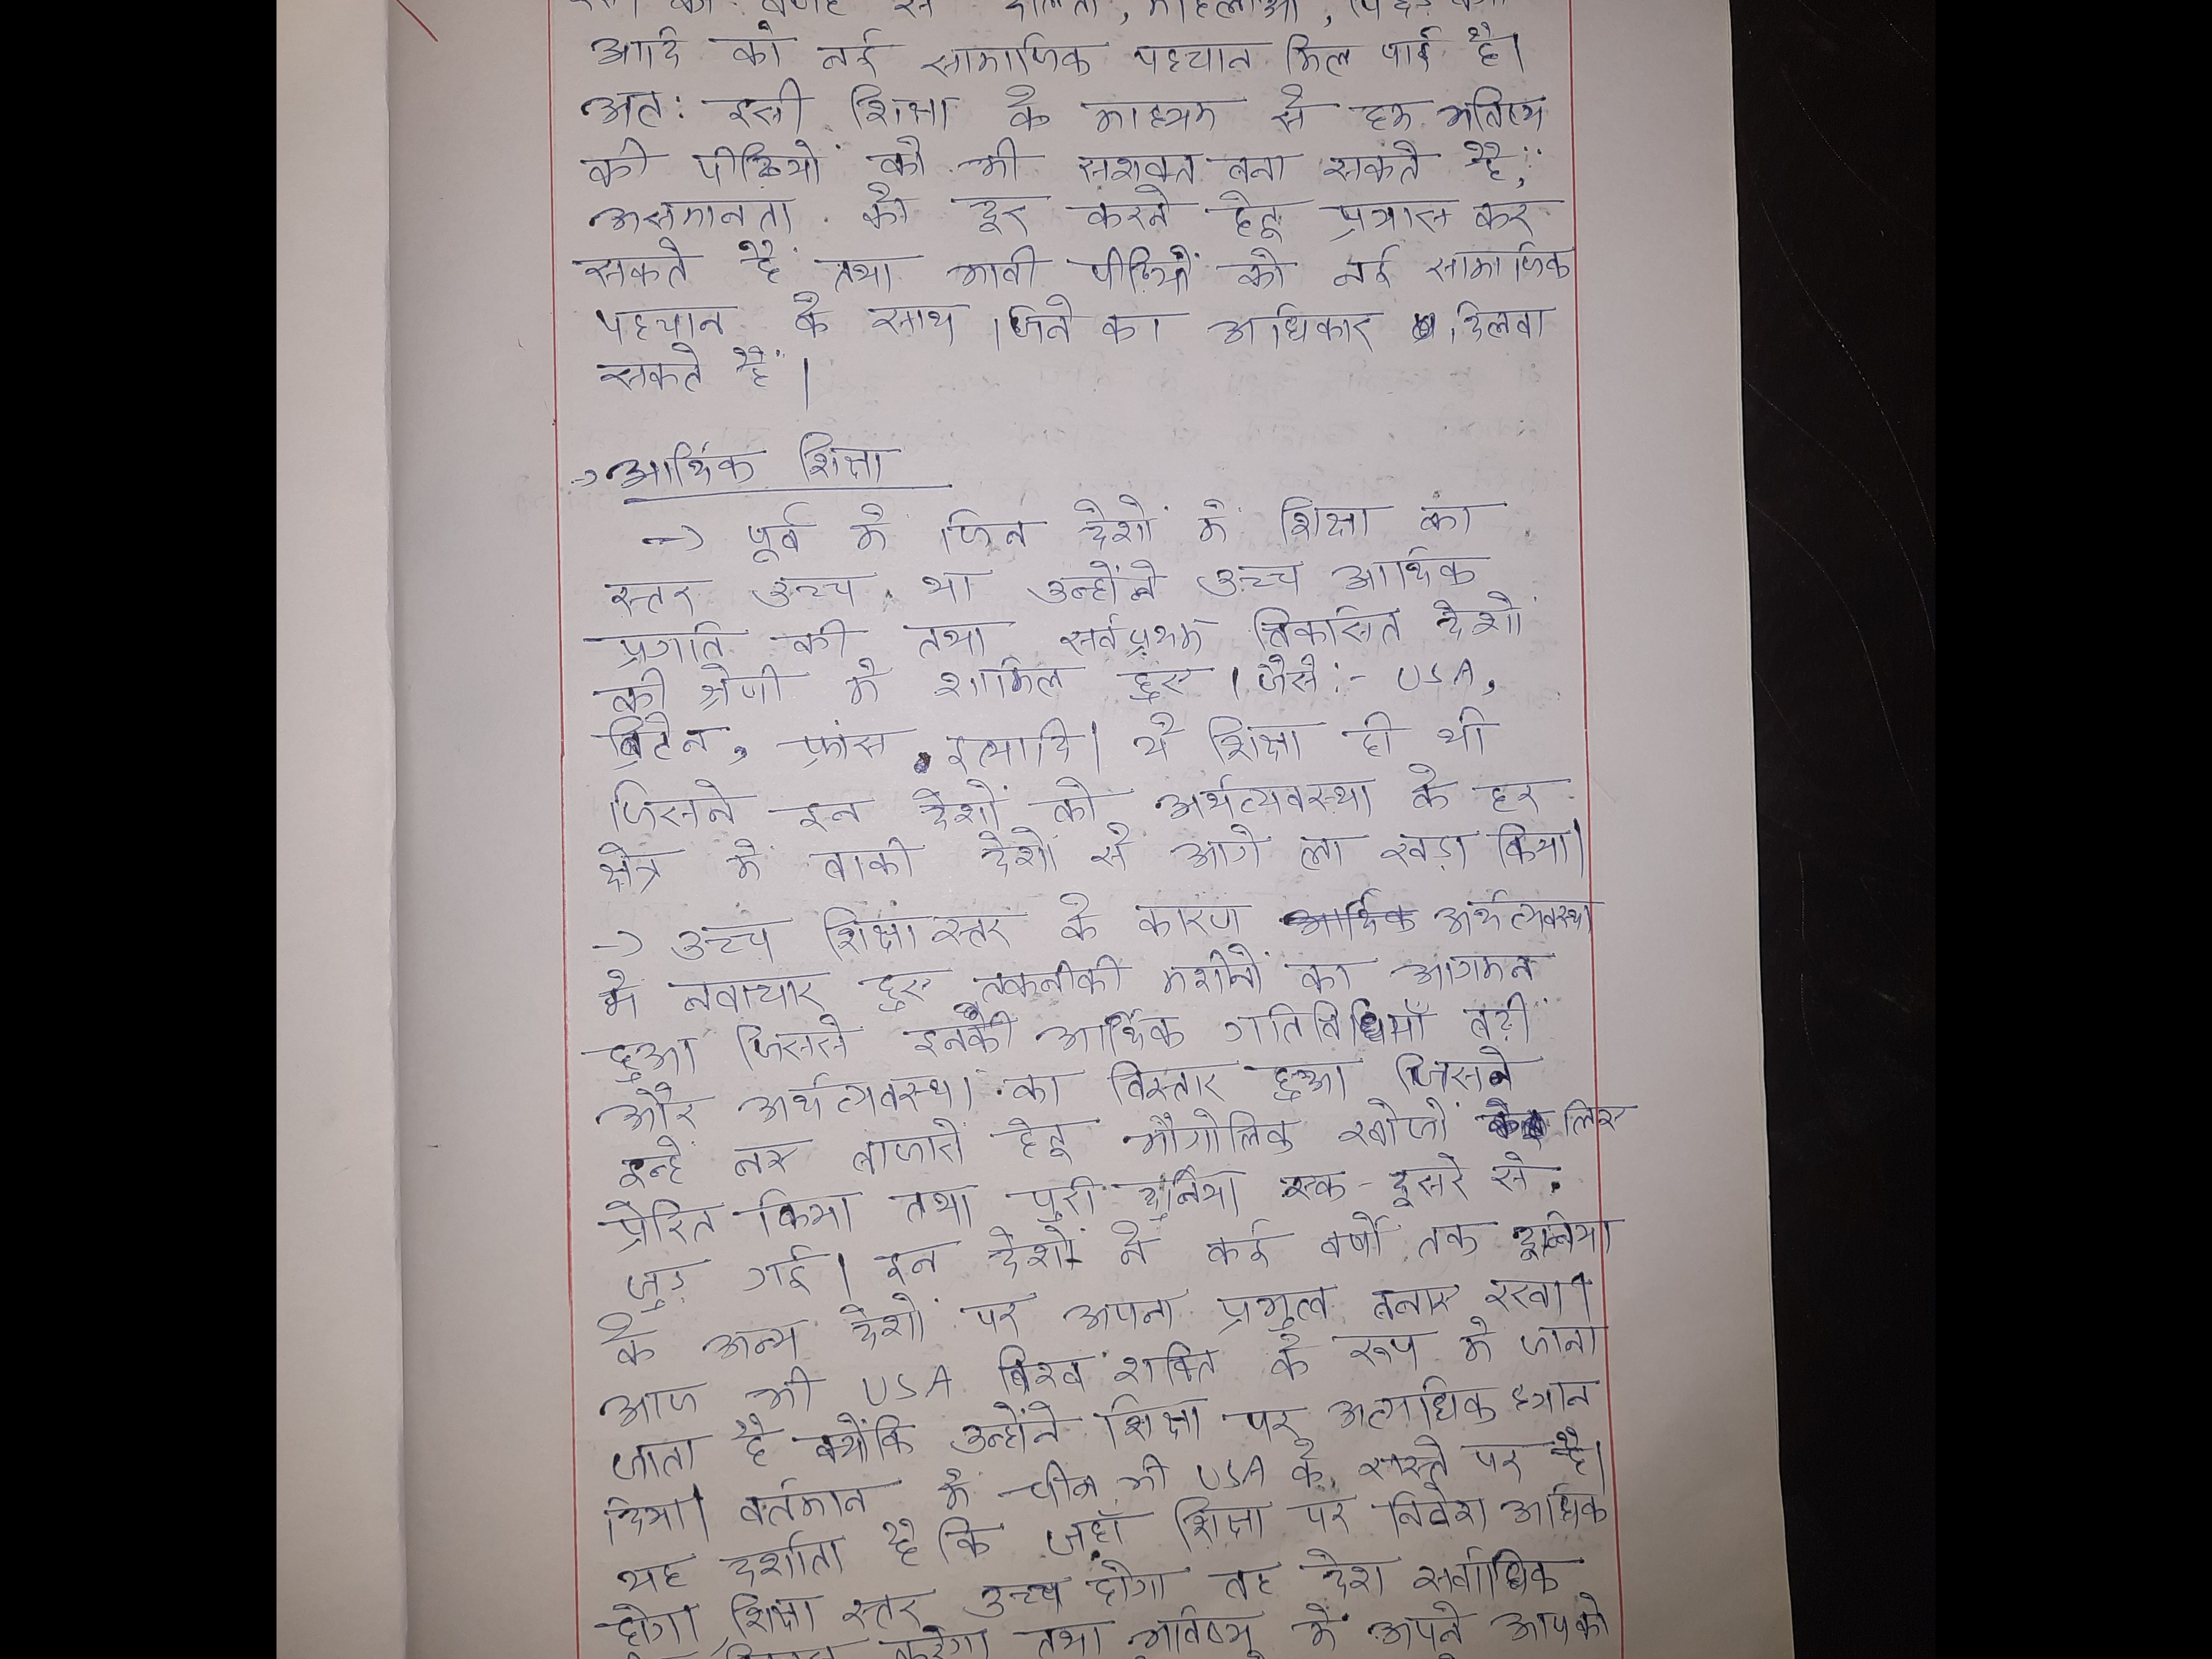 महिलाओं,
आदि को नई सामाजिक पहचान मिल पाई है।
अतः इसी शिक्षा के माध्यम से हम भविष्य
की पीढ़ियों को भी सशक्त बना सकते हैं,
असमानता को दूर करने हेतू प्रयास कर
सकते हैं तथा भावी पीढ़ियों को नई सामाजिक
पहचान के साथ जिने का अधिकार दिलवा
सकते हैं।
→ आर्थिक शिक्षा
→ पूर्व में जिन देशों में शिक्षा का
स्तर उच्च था उन्होंने उच्च आर्थिक
प्रगति की तथा सर्वप्रथम विकसित देशों
की श्रेणी में शामिल हुए। जैसे:- USA,
ब्रिटेन, फ्रांस, इत्यादि। ये शिक्षा ही थी
जिसने इन देशों को अर्थव्यवस्था के हर
क्षेत्र में बाकी देशों से आगे ला खड़ा किया।
→ उच्च शिक्षा स्तर के कारण आर्थिक अर्थव्यवस्था
में नवाचार हुए तकनीकी मशीनों का आगमन
हुआ जिससे इनकी आर्थिक गतिविधियाँ बढ़ीं
और अर्थव्यवस्था का विस्तार हुआ जिसने
इन्हें नए बाजारों हेतू भौगोलिक खोजों के लिए
प्रेरित किया तथा पुरी दुनिया एक-दूसरे से
जुड़ गई। इन देशों ने कई वर्षों तक दूनिया
के अन्य देशों पर अपना प्रभुत्व बनाए रखा।
आज भी USA विश्व शक्ति के रूप में जाना
जाता है क्योंकि उन्होंने शिक्षा पर अत्यधिक ध्यान
दिया। वर्तमान में चीन भी USA के रास्ते पर है।
यह दर्शाता है कि जहाँ शिक्षा पर निवेश अधिक
होगा, शिक्षा स्तर उच्च होगा वह देश सर्वाधिक
करेगा तथा भविष्य में अपने आपको